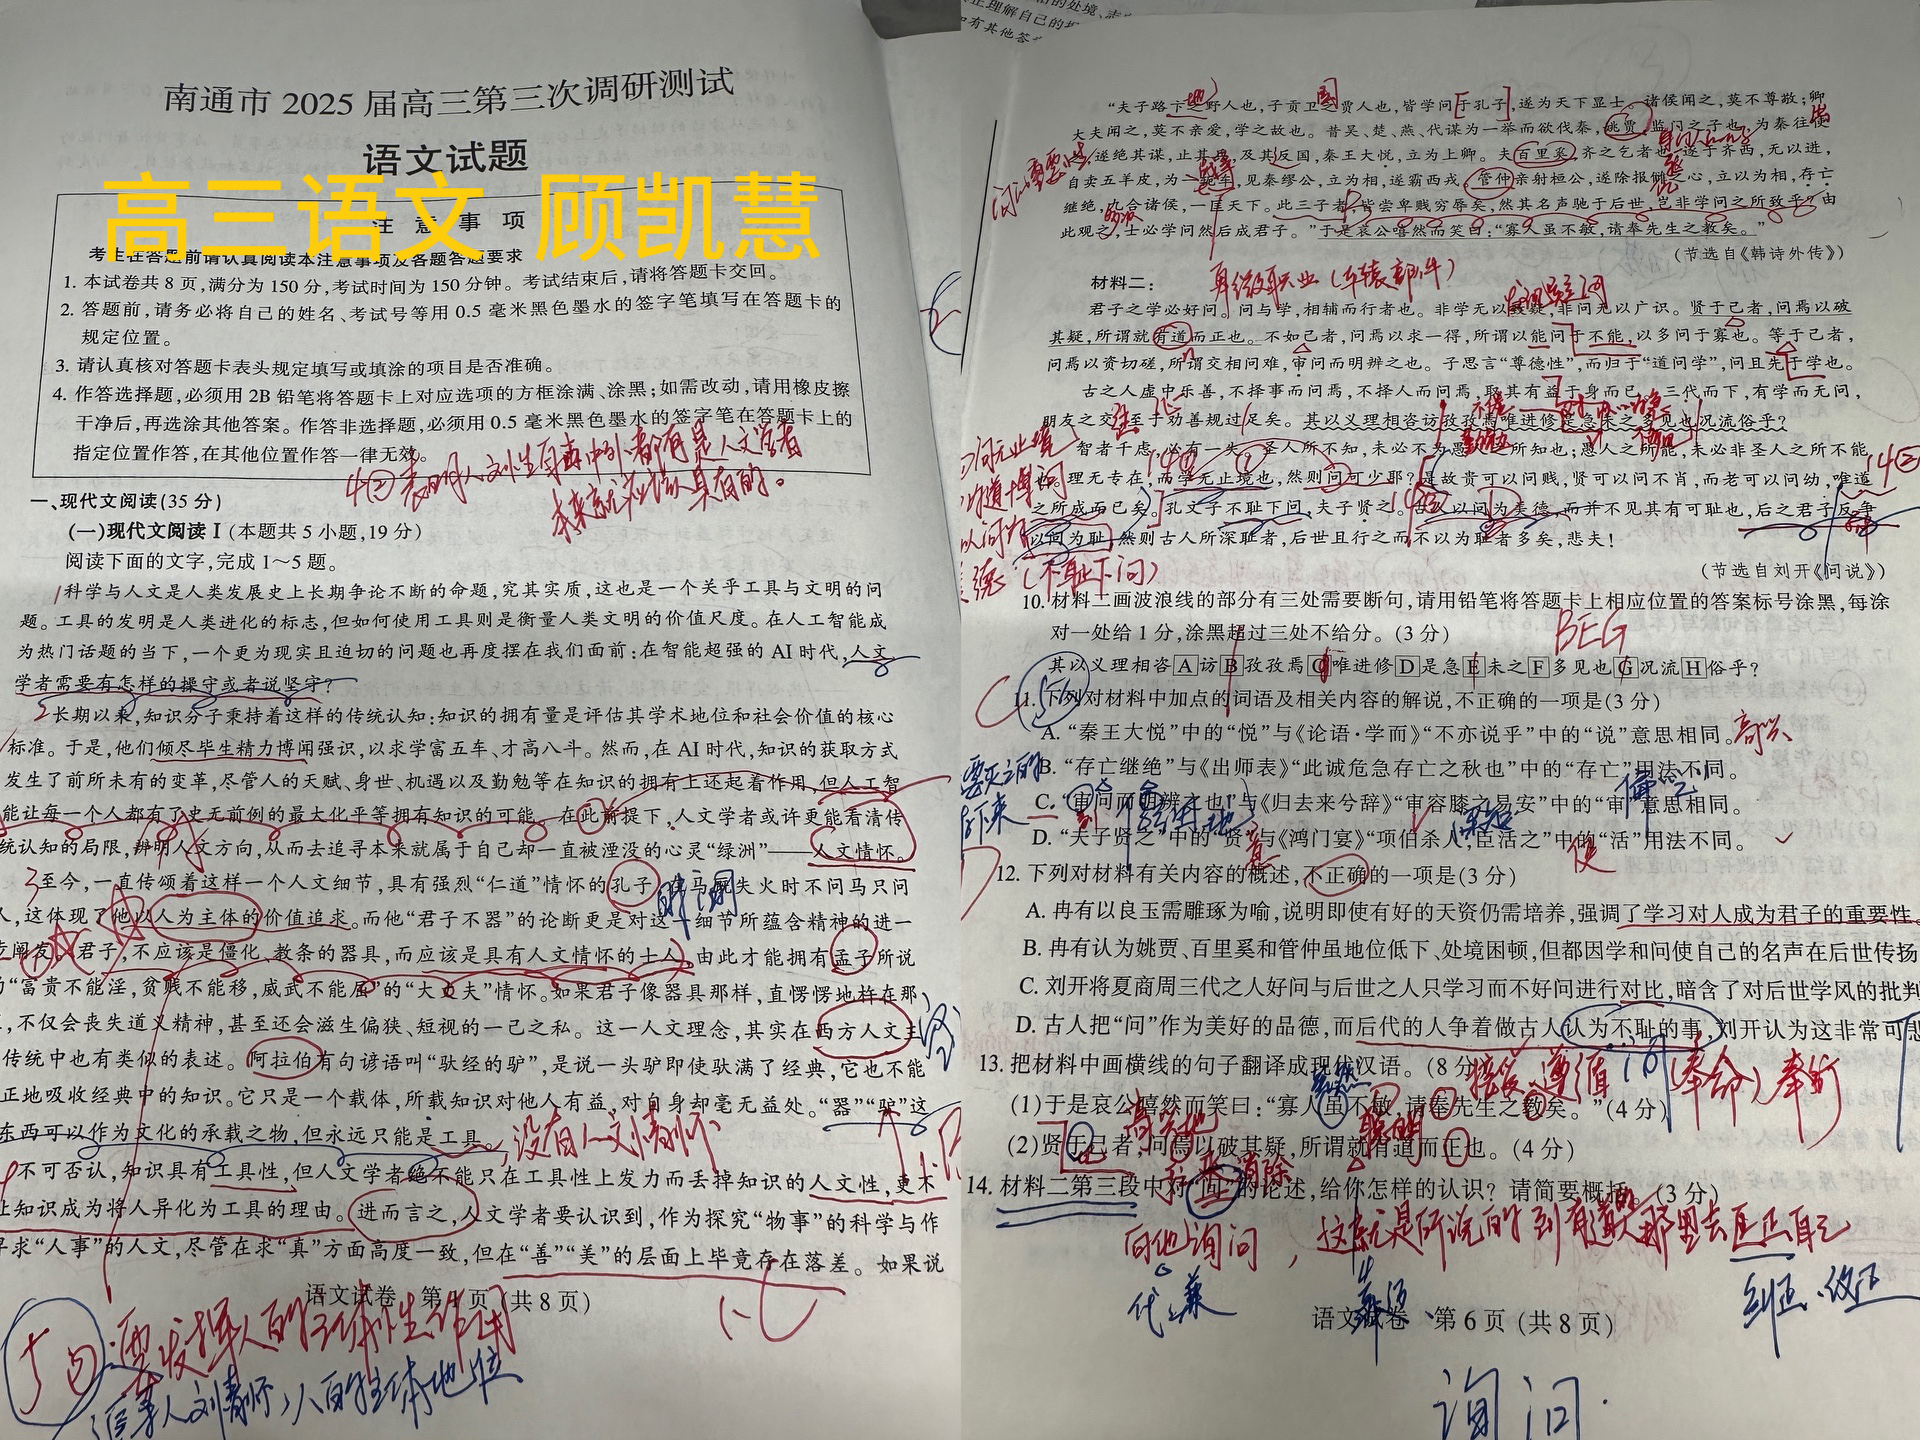 南通市 2025 届高三第三次调研测试
语文试题
高三语文 顾凯慧
注 意 事 项
考生在答题前请认真阅读本注意事项及各题答题要求
1. 本试卷共 8 页,满分为 150 分,考试时间为 150 分钟。考试结束后,请将答题卡交回。
2. 答题前,请务必将自己的姓名、考试号等用 0.5 毫米黑色墨水的签字笔填写在答题卡的
规定位置。
3. 请认真核对答题卡表头规定填写或填涂的项目是否准确。
4. 作答选择题,必须用 2B 铅笔将答题卡上对应选项的方框涂满、涂黑;如需改动,请用橡皮擦
干净后,再选涂其他答案。作答非选择题,必须用 0.5 毫米黑色墨水的签字笔在答题卡上的
指定位置作答,在其他位置作答一律无效。
一、现代文阅读(35 分)
(一)现代文阅读 I (本题共 5 小题,19 分)
阅读下面的文字,完成 1～5 题。
科学与人文是人类发展史上长期争论不断的命题,究其实质,这也是一个关乎工具与文明的问
题。工具的发明是人类进化的标志,但如何使用工具则是衡量人类文明的价值尺度。在人工智能成
为热门话题的当下,一个更为现实且迫切的问题也再度摆在我们面前:在智能超强的 AI 时代,人文
学者需要有怎样的操守或者说坚守?
长期以来,知识分子秉持着这样的传统认知:知识的拥有量是评估其学术地位和社会价值的核心
标准。于是,他们倾尽毕生精力博闻强识,以求学富五车、才高八斗。然而,在 AI 时代,知识的获取方式
发生了前所未有的变革,尽管人的天赋、身世、机遇以及勤勉等在知识的拥有上还起着作用,但人工智
能让每一个人都有了史无前例的最大化平等拥有知识的可能。在此前提下,人文学者或许更能看清传
统认知的局限,辨明人文方向,从而去追寻本来就属于自己却一直被湮没的心灵“绿洲”——人文情怀。
至今,一直传颂着这样一个人文细节,具有强烈“仁道”情怀的孔子,在马厩失火时不问马只问
人,这体现了他以人为主体的价值追求。而他“君子不器”的论断更是对这一细节所蕴含精神的进一
步阐发:君子,不应该是僵化、教条的器具,而应该是具有人文情怀的士人,由此才能拥有孟子所说
的“富贵不能淫,贫贱不能移,威武不能屈”的“大丈夫”情怀。如果君子像器具那样,直愣愣地杵在那
,不仅会丧失道义精神,甚至还会滋生偏狭、短视的一己之私。这一人文理念,其实在西方人文主
传统中也有类似的表述。阿拉伯有句谚语叫“驮经的驴”,是说一头驴即使驮满了经典,它也不能
正地吸收经典中的知识。它只是一个载体,所载知识对他人有益,对自身却毫无益处。“器”“驴”这
东西可以作为文化的承载之物,但永远只能是工具。
不可否认,知识具有工具性,但人文学者绝不能只在工具性上发力而丢掉知识的人文性,更不
让知识成为将人异化为工具的理由。进而言之,人文学者要认识到,作为探究“物事”的科学与作
寻求“人事”的人文,尽管在求“真”方面高度一致,但在“善”“美”的层面上毕竟存在落差。如果说
没有人文情怀
语文试卷 第 页(共 8 页)
要发挥人的主体性作用
“夫子路卞之野人也,子贡卫之贾人也,皆学问于孔子,遂为天下显士。诸侯闻之,莫不尊敬;卿
大夫闻之,莫不亲爱,学之故也。昔吴、楚、燕、代谋为一举而欲伐秦,姚贾,监门之子也,为秦往使
之,遂绝其谋,止其兵,及其反国,秦王大悦,立为上卿。夫百里奚,齐之乞者也,逐于齐西,无以进,
自卖五羊皮,为一轭车,见秦缪公,立为相,遂霸西戎。管仲亲射桓公,遂除报仇之心,立以为相,存亡
继绝,九合诸侯,一匡天下。此三子者,皆尝卑贱穷辱矣,然其名声驰于后世,岂非学问之所致乎?由
此观之,士必学问然后成君子。”于是哀公嘻然而笑曰:“寡人虽不敏,请奉先生之教矣。”
(节选自《韩诗外传》)
材料二:
君子之学必好问。问与学,相辅而行者也。非学无以致疑,非问无以广识。贤于己者,问焉以破
其疑,所谓就有道而正也。不如己者,问焉以求一得,所谓以能问于不能,以多问于寡也。等于己者,
问焉以资切磋,所谓交相问难,审问而明辨之也。子思言“尊德性”,而归于“道问学”,问且先于学也。
古之人虚中乐善,不择事而问焉,不择人而问焉,取其有益于身而已。三代而下,有学而无问,
朋友之交,至于劝善规过足矣。其以义理相咨访孜孜焉唯进修是急未之多见也况流俗乎?
智者千虑,必有一失。圣人所不知,未必不为愚人之所知也;愚人之所能,未必非圣人之所不能
也。理无专在,而学无止境也,然则问可少耶?是故贵可以问贱,贤可以问不肖,而老可以问幼,唯道
之所成而已矣。孔文子不耻下问,夫子贤之。古人以问为美德,而并不见其有可耻也,后之君子反争
以问为耻,然则古人所深耻者,后世且行之而不以为耻者多矣,悲夫!
(不耻下问)
(节选自刘开《问说》)
10. 材料二画波浪线的部分有三处需要断句,请用铅笔将答题卡上相应位置的答案标号涂黑,每涂
对一处给 1 分,涂黑超过三处不给分。(3 分)
BEG
其以义理相咨 A 访 B 孜孜焉 C 唯进修 D 是急 E 未之 F 多见也 G 况流 H 俗乎?
11. 下列对材料中加点的词语及相关内容的解说,不正确的一项是(3 分)
A. “秦王大悦”中的“悦”与《论语·学而》“不亦说乎”中的“说”意思相同。高兴
B. “存亡继绝”与《出师表》“此诚危急存亡之秋也”中的“存亡”用法不同。
C. “审问而明辨之也”与《归去来兮辞》“审容膝之易安”中的“审”意思相同。
D. “夫子贤之”中的“贤”与《鸿门宴》“项伯杀人,臣活之”中的“活”用法不同。
12. 下列对材料有关内容的概述,不正确的一项是(3 分)
A. 冉有以良玉需雕琢为喻,说明即使有好的天资仍需培养,强调了学习对人成为君子的重要性。
B. 冉有认为姚贾、百里奚和管仲虽地位低下、处境困顿,但都因学和问使自己的名声在后世传扬
C. 刘开将夏商周三代之人好问与后世之人只学习而不好问进行对比,暗含了对后世学风的批判
D. 古人把“问”作为美好的品德,而后代的人争着做古人认为不耻的事,刘开认为这非常可悲
13. 把材料中画横线的句子翻译成现代汉语。(8 分)
(1)于是哀公嘻然而笑曰:“寡人虽不敏,请奉先生之教矣。”(4 分)
(2)贤于己者,问焉以破其疑,所谓就有道而正也。(4 分)
14. 材料二第三段中对“问”的论述,给你怎样的认识?请简要概括。(3 分)
向他询问,这就是所说的到有道的人那里去匡正自己
纠正、改正
语文试卷 第 6 页(共 8 页)
询问.